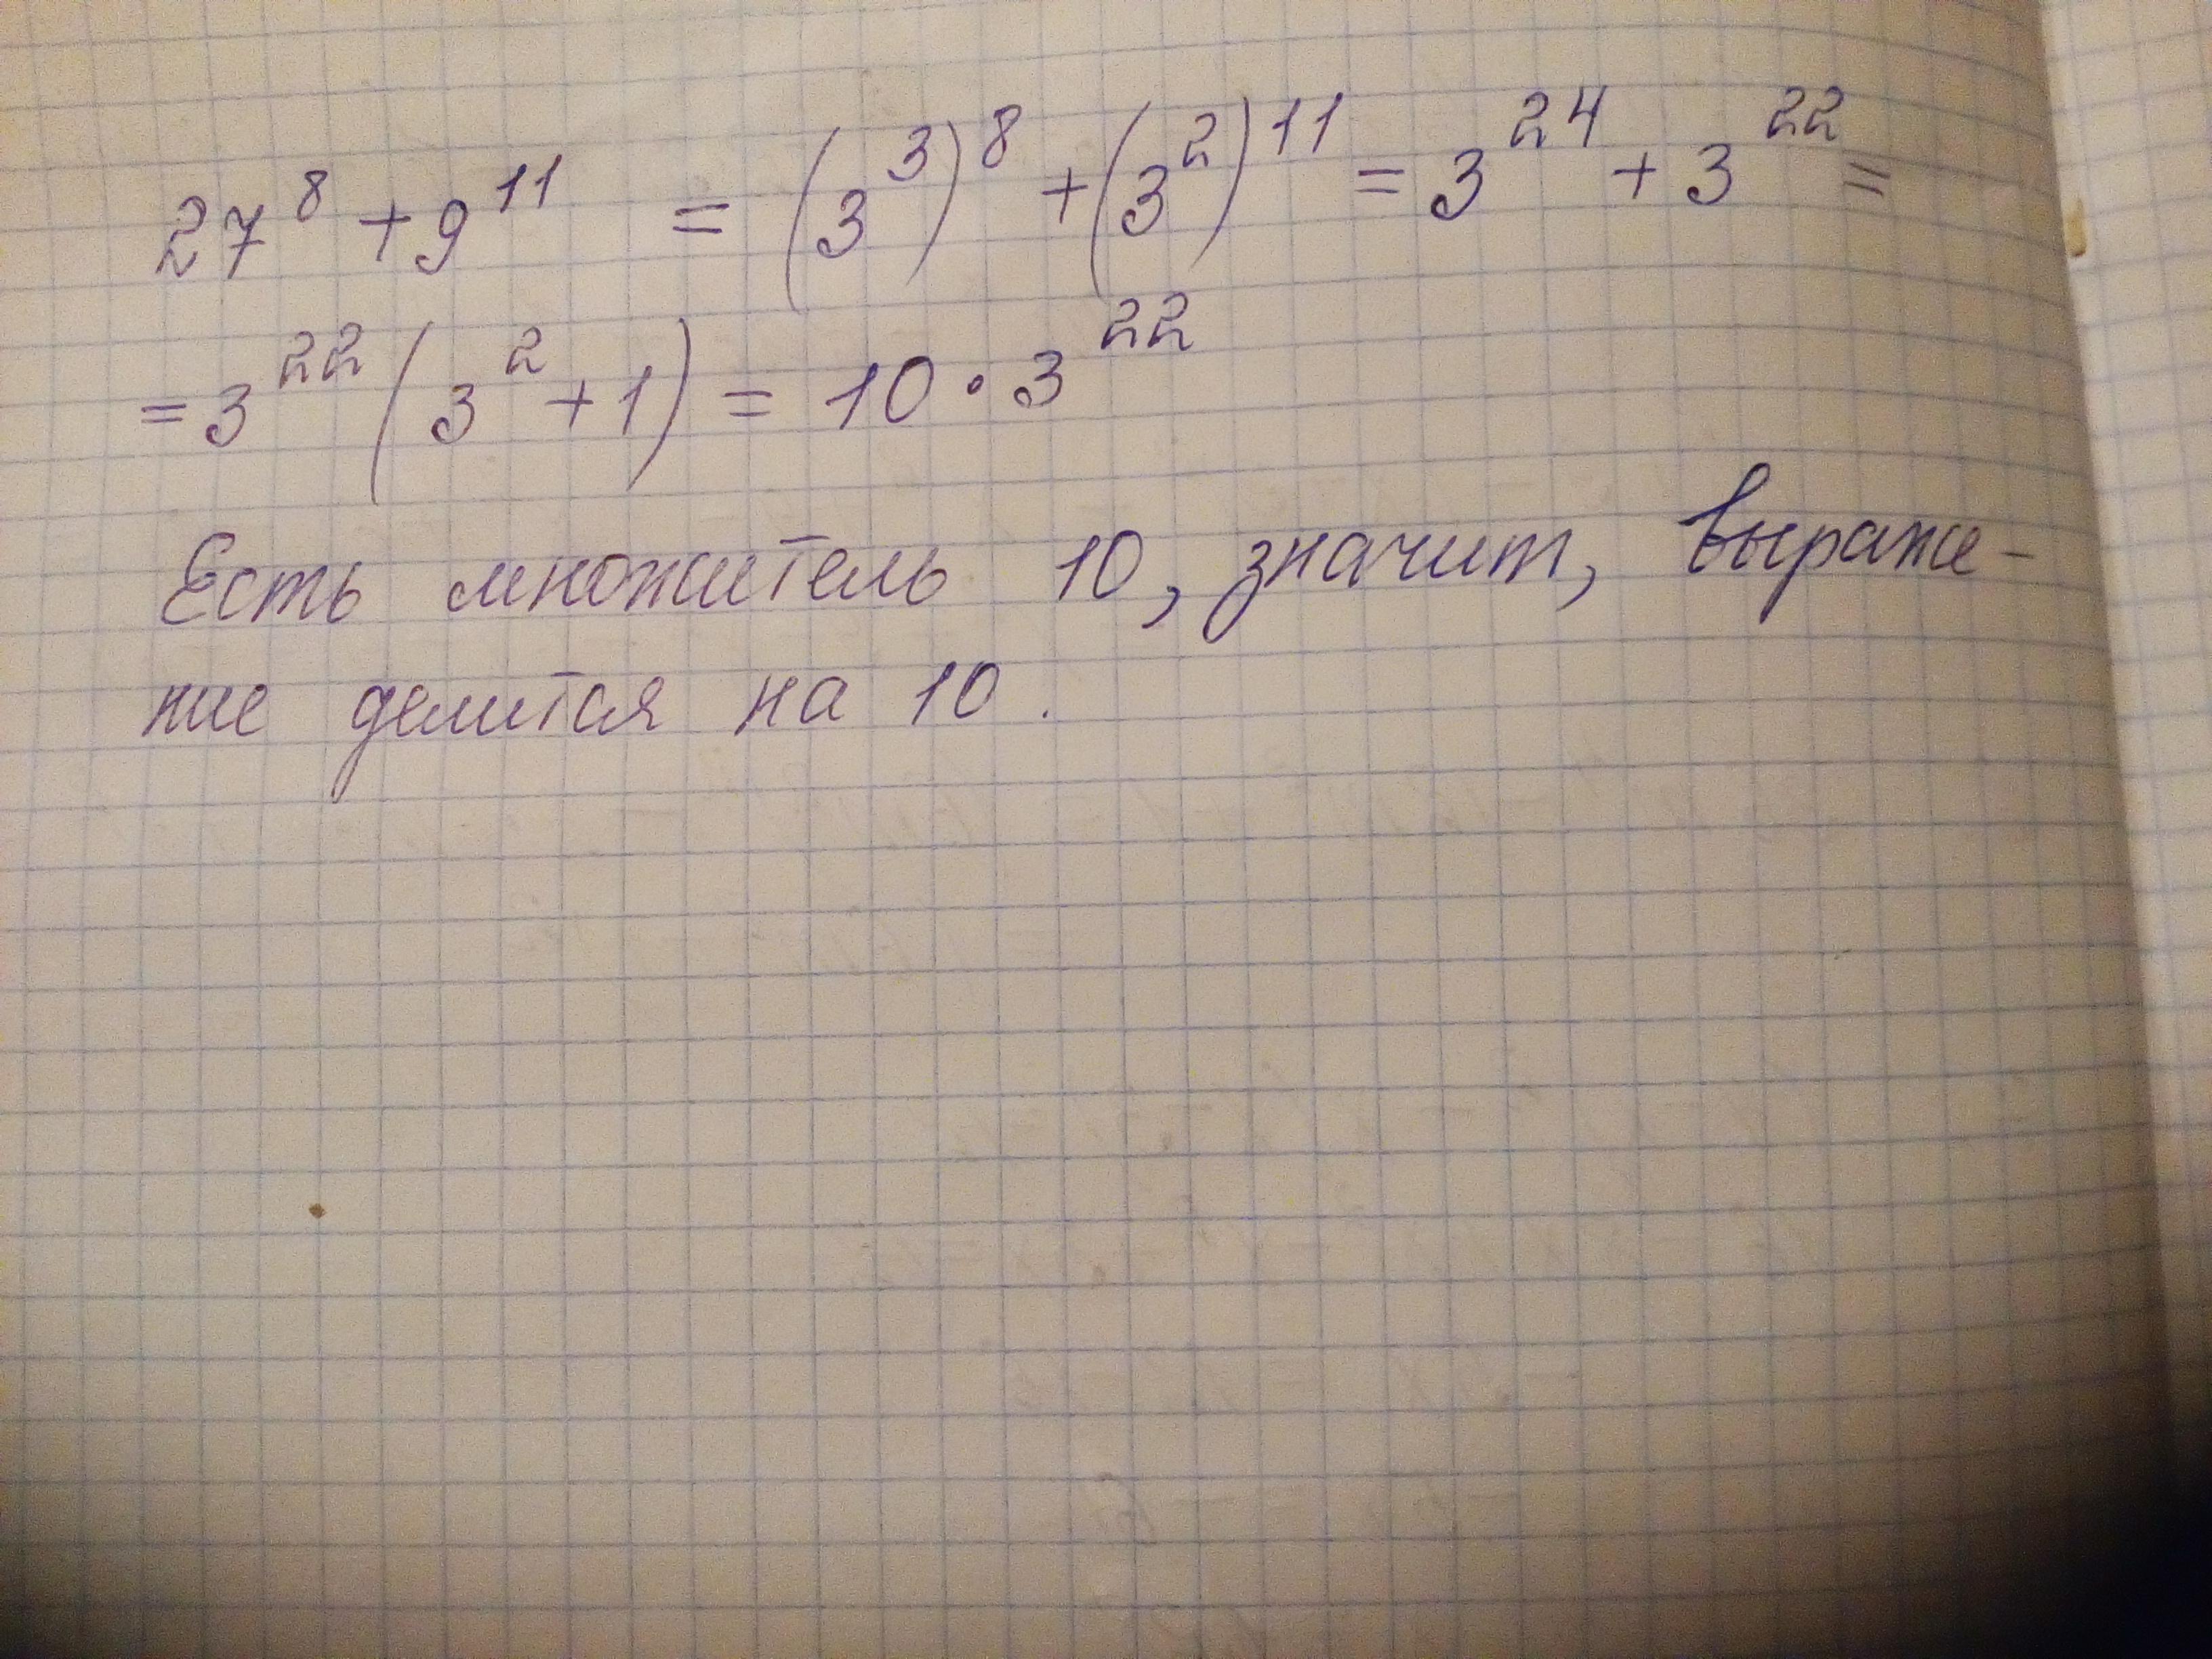 27⁸ + 9¹¹ = (3³)⁸ + (3²)¹¹ = 3²⁴ + 3²² =
= 3²² (3² + 1) = 10 · 3²²
Есть множитель 10, значит, выраже-
ние делится на 10.